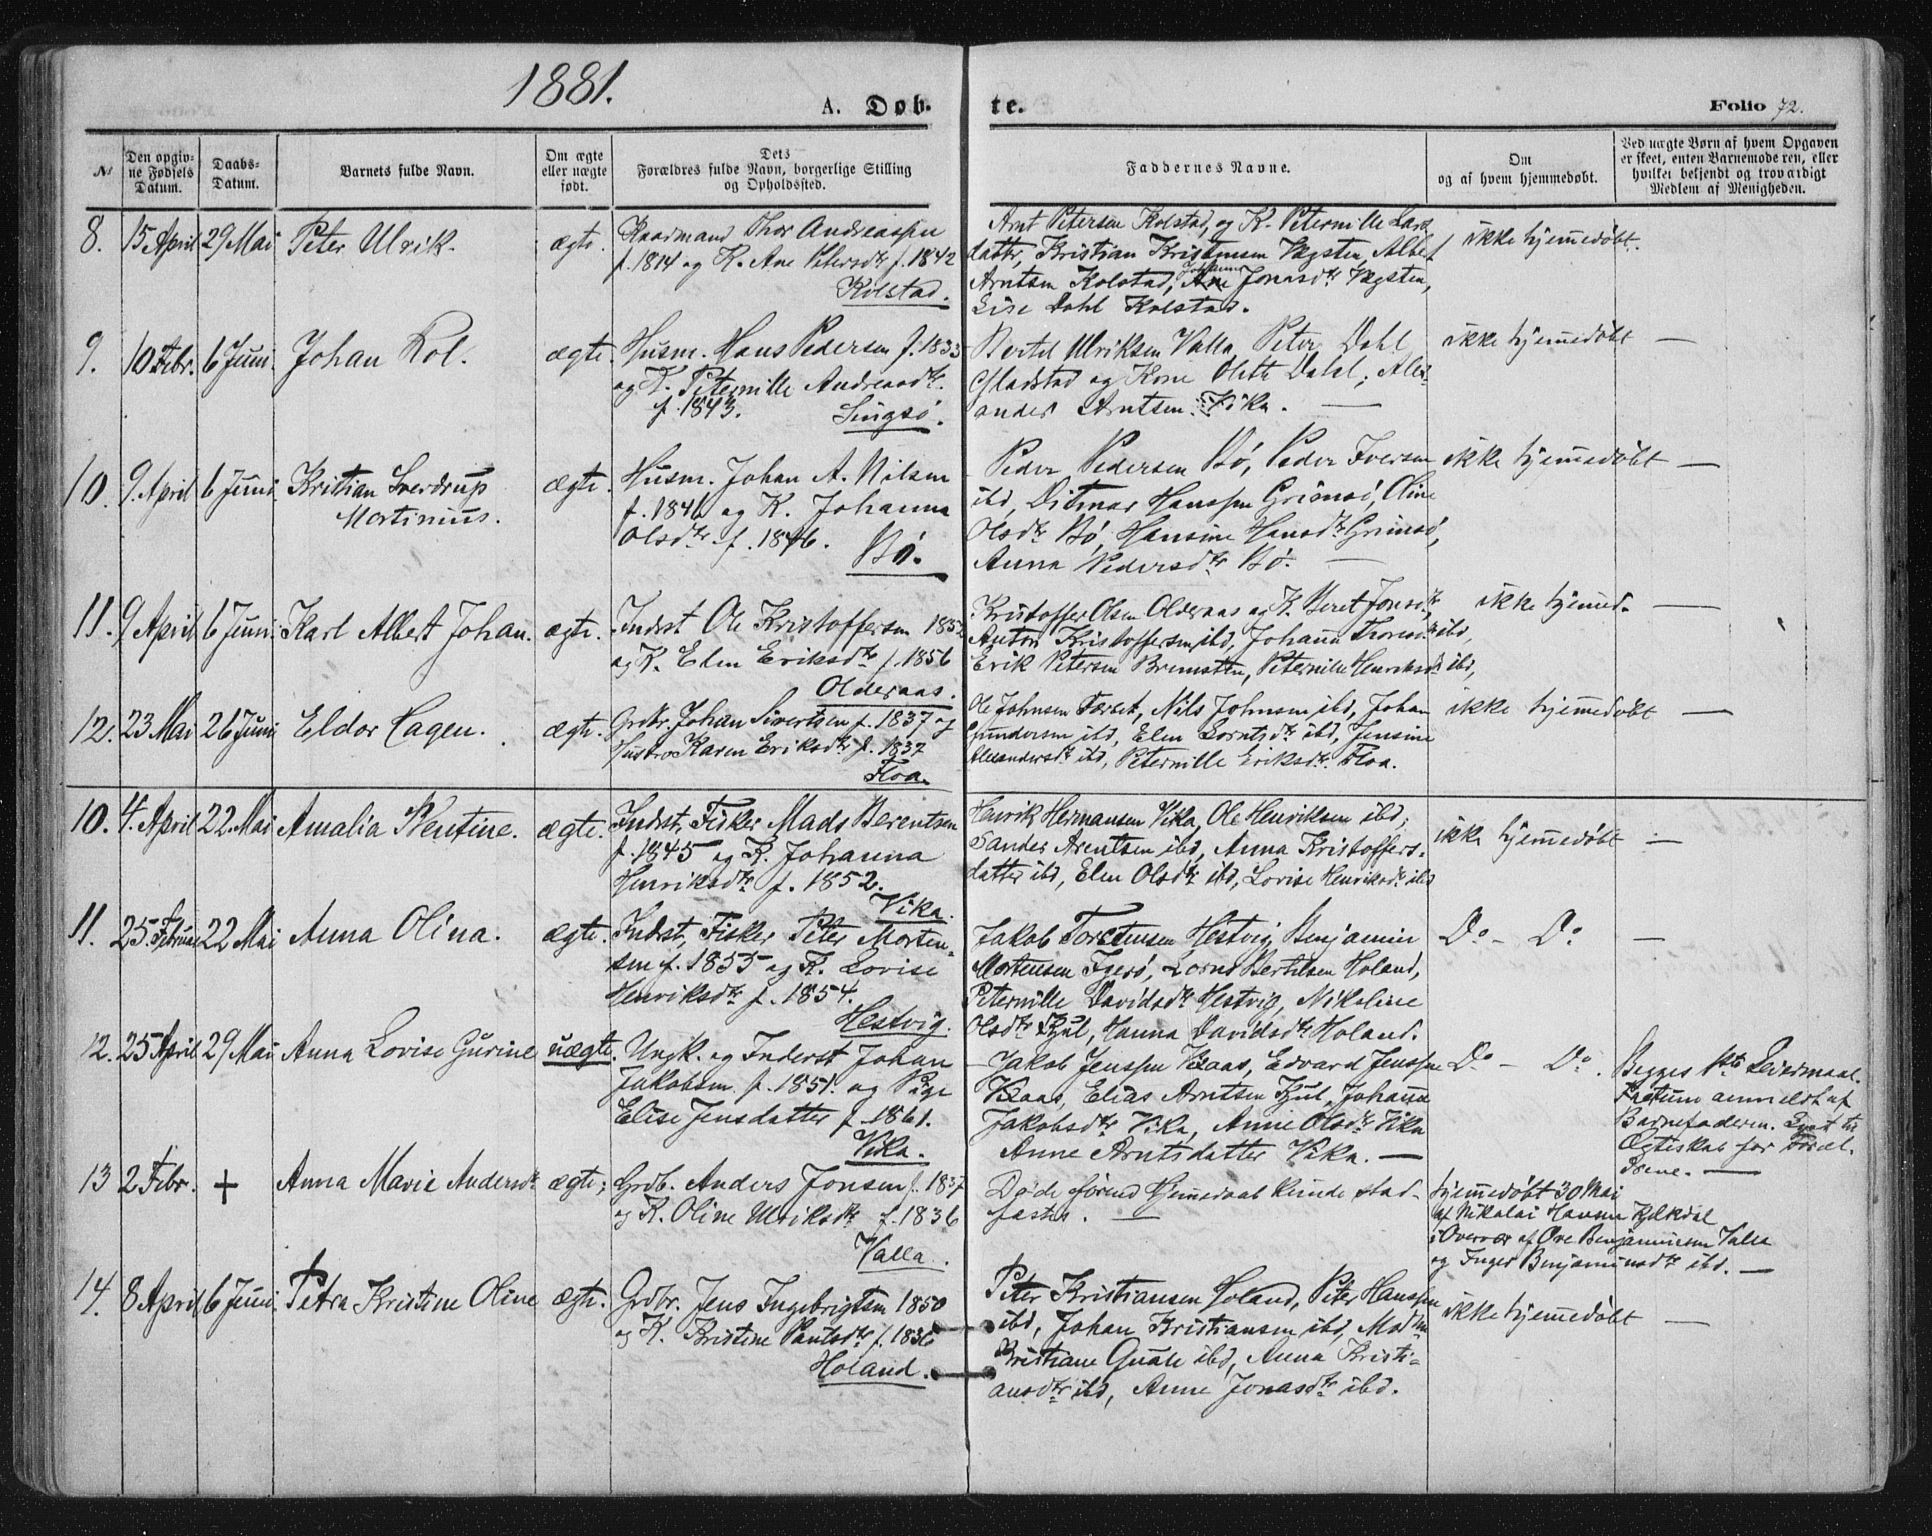 1881.
A. Døb- te. Folio 72.
№
Den opgiv-
ne Fødsels
Datum.
Daabs-
Datum.
Barnets fulde Navn.
Om ægte
eller uægte
født.
Dets
Forældres fulde Navn, borgerlige Stilling
og Opholdssted.
Faddernes Navne.
Om
og af hvem hjemmedøbt.
Ved uægte Børn af hvem Opgaven
er skeet, enten Barnemoderen, eller
hvilket bekjendt og troværdigt
Medlem af Menigheden.
8. 15 April 29 Mai Peter Ulrik. ægte.
Kaarmand Thor Andreassen
f. 1814 og K. Ane Petersdtr f. 1842
Kolstad.
Arnt Petersen Kolstad, og K. Peternille Lars
datter, Kristian Kristensen Vægsten, Albert
Arntsen Kolstad, Johanna Jonasdtr Vægsten,
Lise Dahl Kolstad.
ikke hjemedøbt.
9. 10 Febr. 6 Juni. Johan Rol. ægte.
Husm. Hans Pedersen f. 1835
og K. Peternille Andreasdtr.
f. 1843. Lingsø.
Bertel Ulriksen Valla, Peter Dahl
Gladstad og Kone Oleth Dahl, Alex-
ander Arntsen Vika. —
ikke hjemedøbt —
10. 9. April 6 Juni Kristian Sverdrup
Mortinius. ægte.
Husm. Johan A. Nilsen
f. 1846 og K. Johanna
Olsdtr f. 1846.
Bø.
Peder Pedersen Bø, Peder Iversen
ibd, Ditmar Hanssen Grimsø, Oline
Olsdtr Bø, Hansine Hansdtr Grimsø,
Anna Pedersdtr Bø. —
ikke hjemedøbt —
11. 9 April 6 Juni. Karl Albert Johan. ægte.
Inderst Ole Kristoffersen 1852
og K. Elen Eriksdtr f. 1856
Olderaas.
Kristoffer Olsen Olderaas og K. Beret Jonsdtr,
Anton Kristoffersen ibd, Johanna ibd,
Erik Petersen Bremsten, Peternille Henriksdtr ibd,
ikke hjemed. —
12. 23 Mai 26 Juni Eldor Hagen. ægte.
Grdbr. Johan Sivertsen f. 1837 og
Hustro Karen Eriksdtr f. 1837
Floa.
Ole Johnsen Færset, Nils Johnsen ibd, Johan
Gundersen ibd, Elen Lorntsdtr ibd, Jensine
Alexandersdtr ibd, Peternille Eriksdtr. Floa.
ikke hjemedøbt —
10. 4. April 22 Mai Amalia Wentine. ægte.
Inderst, Fisker Mads Berentsen
f. 1845 og K. Johanna
Henriksdtr f. 1852.
Vika.
Henrik Hermansen Vika, Ole Henriksen ibd,
Sander Arentsen ibd, Anna Kristoffers-
datter ibd, Elen Olsdtr ibd, Lovise Henriksdtr ibd
ikke hjemedøbt —
11. 25 Februar 22 Mai Anna Olina. ægte.
Inderst, Fisker Peter Morten-
sen f. 1853 og K. Lovise
Henriksdtr f. 1854.
Hestvig.
Jakob Torstensen Hestvig, Benjamin
Mortensen Igerø, Lornts Bertelsen Holand,
Peternille Davidsdtr Hestvig, Nikoline
Olsdtr Kjul, Hanna Davidsdtr Holand.
Do - Do —
12. 25 April 29 Mai Anna Lovise Gurine uægte.
Ungk. og Inderst Johan
Jakobsen f. 1851 og Pige
Elise Jensdatter f. 1861.
Vika.
Jakob Jenssen Kaas, Edvard Jenssen
Kaas, Elias Arntsen Kjul, Johanna
Jakobsdtr Vika, Anne Olsdtr Vika
Anne Arntsdatter Vika. —
Do - Do.
Begges 1ste Leiermaal.
Factum anmeldt af
Barnefaderen. Lyst til
Ægteskab for Foræl-
drene. —
13 2 Febr. + Anna Marie Andersdtr ægte;
Grdb. Anders Jonsen f. 1837
og K. Oline Ulriksdtr f. 1836
Valla.
Døde førend Hjemedaab kunde stad-
fæstes. —
hjemedøbt 30 Mai
af Nikolai Hansen
i Overvær af Ove Benjaminsen Valla
og Inger Benjaminsdtr ibd. —
14. 8 April 6 Juni. Petra Kristine Oline ægte.
Grdbr. Jens Ingebrigtsen 1850
og K. Kristine Paulsdtr f. 1836
Holand.
Peter Kristiansen Holand, Peter Hanssen
ibd, Johan Kristiansen ibd, Madm
Kristiane Quale ibd, Anna Kristi-
ansdtr ibd, Anne Jonasdtr ibd.
ikke hjemedøbt —